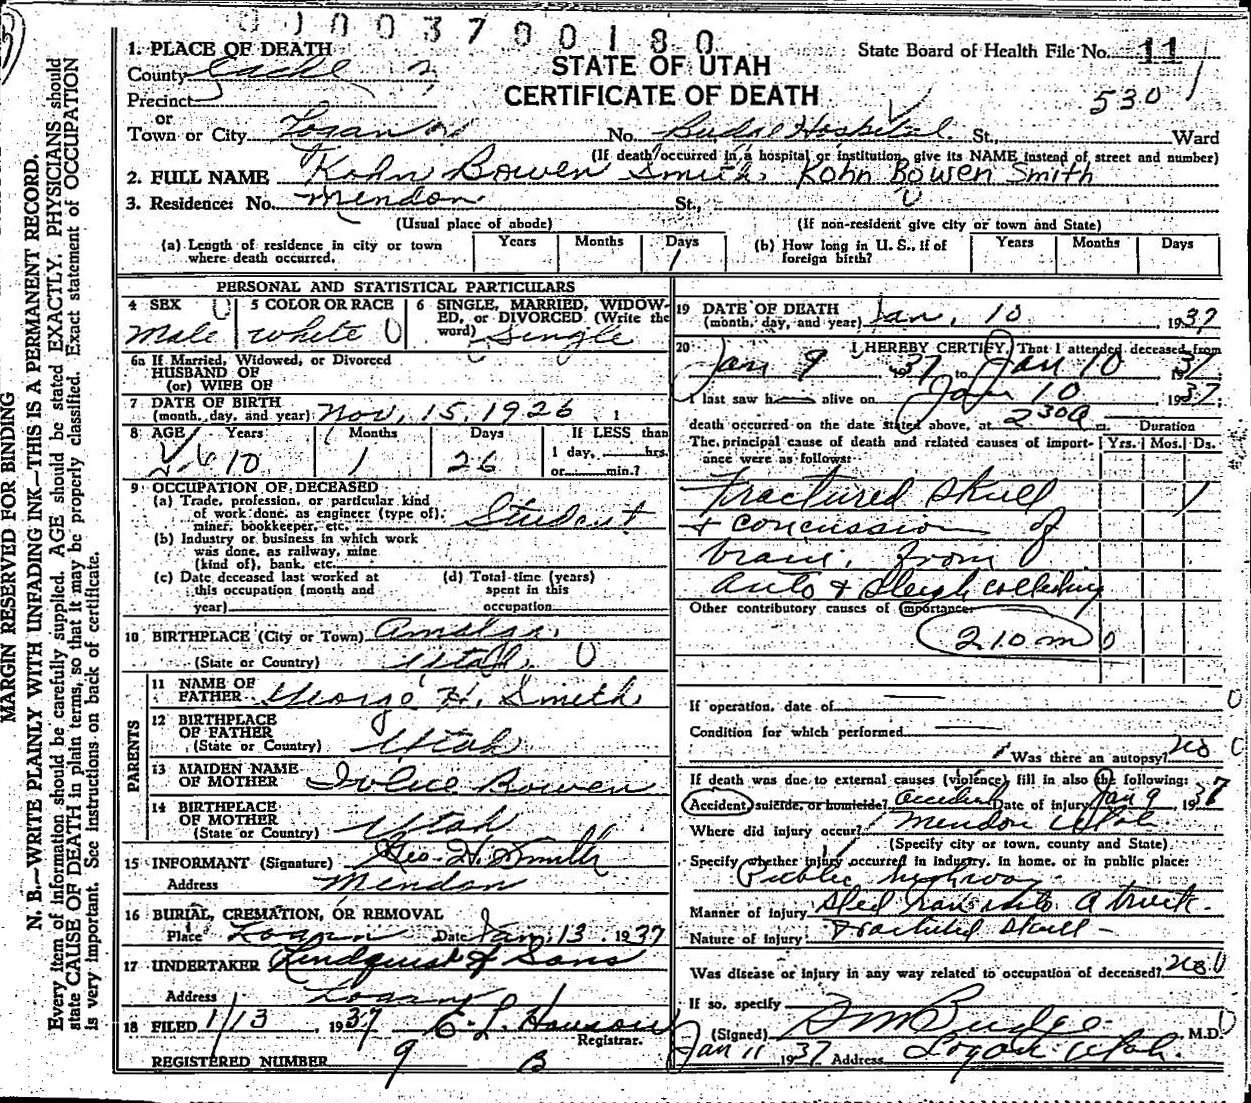 0 1 0 0 3 7 0 0 1 8 0
1. PLACE OF DEATH
STATE OF UTAH
CERTIFICATE OF DEATH
State Board of Health File No. 11
530
County Cache
Precinct
or
Town or City Logan No. Budge Hospital St., Ward
(If death occurred in a hospital or institution, give its NAME instead of street and number)
2. FULL NAME Kohn Bowen Smith. Kohn Bowen Smith
3. Residence: No. Mendon St.,
(Usual place of abode) (If non-resident give city or town and State)
(a) Length of residence in city or town where death occurred. Years Months Days 1
(b) How long in U. S., if of foreign birth? Years Months Days
PERSONAL AND STATISTICAL PARTICULARS
4 SEX Male
5 COLOR OR RACE white
6 SINGLE, MARRIED, WIDOWED, or DIVORCED (Write the word) Single
6a If Married, Widowed, or Divorced
HUSBAND OF
(or) WIFE OF
7 DATE OF BIRTH
(month, day, and year) Nov. 15, 1926
8 AGE Years 10 Months 1 Days 26 If LESS than 1 day, hrs. or min.?
9 OCCUPATION OF DECEASED
(a) Trade, profession, or particular kind
of work done, as engineer (type of),
miner, bookkeeper, etc. Student
(b) Industry or business in which work
was done, as railway, mine
(kind of), bank, etc.
(c) Date deceased last worked at
this occupation (month and
year)
(d) Total time (years)
spent in this
occupation
10 BIRTHPLACE (City or Town)
(State or Country) Utah.
PARENTS
11 NAME OF
FATHER George H. Smith
12 BIRTHPLACE
OF FATHER
(State or Country) Utah
13 MAIDEN NAME
OF MOTHER Bowen
14 BIRTHPLACE
OF MOTHER
(State or Country) Utah
15 INFORMANT (Signature) Geo. H. Smith
Address Mendon
16 BURIAL, CREMATION, OR REMOVAL
Place Logan Date Jan. 13, 1937
17 UNDERTAKER Lindquist & Sons
Address Logan
18 FILED 1/13, 1937 E. L. Hanson
Registrar.
REGISTERED NUMBER 9 B
19 DATE OF DEATH
(month, day, and year) Jan. 10 1937
20 I HEREBY CERTIFY, That I attended deceased from
Jan 9 1937 to Jan 10 1937
I last saw h alive on Jan 10 1937;
death occurred on the date stated above, at 2 30 a m. Duration
The principal cause of death and related causes of importance were as follows: Yrs. Mos. Ds.
Fractured skull 1
& concussion of
brain, from
auto & sleigh
Other contributory causes of importance:
210 m
If operation, date of
Condition for which performed
Was there an autopsy? no
If death was due to external causes (violence) fill in also the following:
Accident, suicide, or homicide? accident Date of injury Jan 9 1937
Where did injury occur? Mendon Utah
(Specify city or town, county and State)
Specify whether injury occurred in industry, in home, or in public place:
Public highway
Manner of injury Sled ran into a truck.
Nature of injury Fractured skull -
Was disease or injury in any way related to occupation of deceased? no
If so, specify
(Signed) Budge M.D.
Jan 11 1937 Address Logan Utah.
MARGIN RESERVED FOR BINDING
N. B.—WRITE PLAINLY WITH UNFADING INK—THIS IS A PERMANENT RECORD.
Every item of information should be carefully supplied. AGE should be stated EXACTLY. PHYSICIANS should
state CAUSE OF DEATH in plain terms, so that it may be properly classified. Exact statement of OCCUPATION
is very important. See instructions on back of certificate.